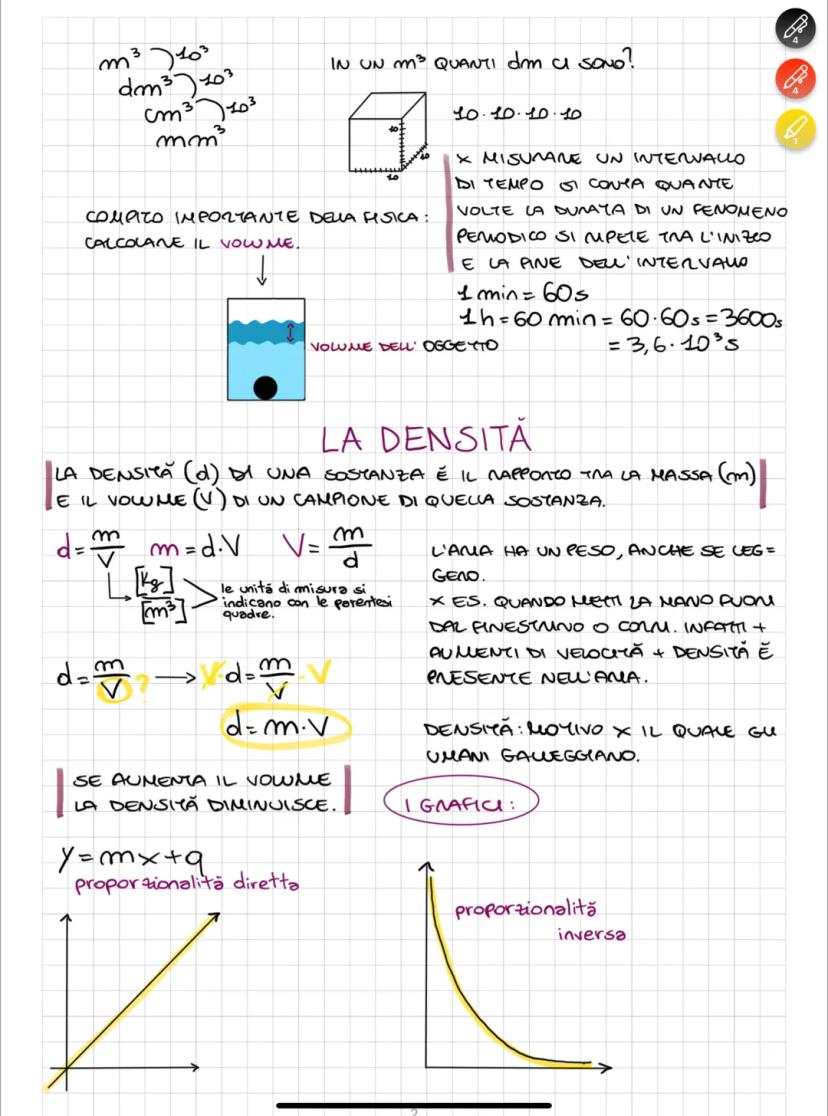 m³ 10³
dm³ 10³
cm³ 10³
mm³
IN UN m³ QUANTI dm CI SONO?
10
10
10
10·10·10·10
X MISURARE UN INTERVALLO
DI TEMPO SI CONTA QUANTE
VOLTE LA DURATA DI UN FENOMENO
PERIODICO SI RIPETE TRA L'INIZIO
E LA FINE DELL'INTERVALLO
1 min = 60s
1h = 60 min = 60·60s = 3600s
= 3,6·10³s
COMPITO IMPORTANTE DELLA FISICA:
CALCOLARE IL VOLUME.
VOLUME DELL'OGGETTO
LA DENSITÀ
LA DENSITÀ (d) DI UNA SOSTANZA È IL RAPPORTO TRA LA MASSA (m)
E IL VOLUME (V) DI UN CAMPIONE DI QUELLA SOSTANZA.
d = m/V m = d·V V = m/d
[kg]
[m³]
le unità di misura si
indicano con le parentesi
quadre.
d = m/V ? → V·d = m/V · V
d = m·V
L'ARIA HA UN PESO, ANCHE SE LEG=
GERO.
X ES. QUANDO METTI LA MANO FUORI
DAL FINESTRINO O CORRI. INFATTI +
AUMENTI DI VELOCITÀ + DENSITÀ È
PRESENTE NELL'ARIA.
DENSITÀ: MOTIVO X IL QUALE GLI
UMANI GALLEGGIANO.
SE AUMENTA IL VOLUME
LA DENSITÀ DIMINUISCE.
I GRAFICI:
y = mx + q
proporzionalità diretta
proporzionalità
inversa
4
4
1
2